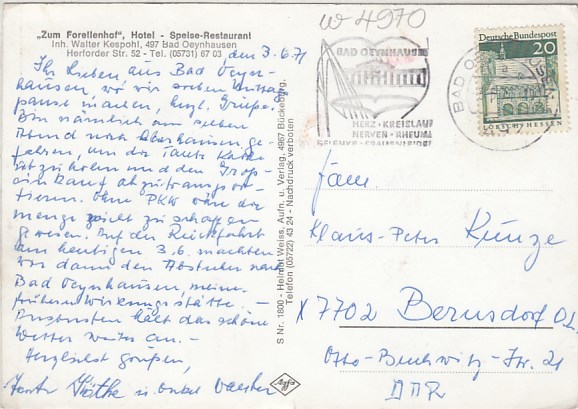 „Zum Forellenhof", Hotel - Speise-Restaurant
Inh. Walter Kespohl, 497 Bad Oeynhausen
Herforder Str. 52 - Tel. (05731) 67 03
den 3.6.71
Ihr Lieben, aus Bad Oeyn-
hausen, wo wir soeben Mittags
pause machen, herzl. Grüße.
Bin nämlich am selben
Abend noch Oberhausen ge-
fahren, um die Tante Käthe
zu holen und den
ohne PKW wäre der
menge nicht zu schaffen
gewesen. Auf der Rückfahrt
am heutigen 3.6. machten
wir dann den Abstecher nach
Bad Oeynhausen, meine
frühere Wirkungsstätte. -
Ansonsten hält das schöne
Wetter weiter an. -
Herzlichst grüßen,
Tante Käthe u. Onkel
S Nr. 1800 - Helmut Weiss, Aufn. u. Verlag, 4967 Bückeburg,
Telefon (05722) 43 24 - Nachdruck verboten
Agfa
w 4970
BAD OEYNHAUSEN
HERZ · KREISLAUF
NERVEN · RHEUMA
GELENKE · FRAUENLEIDEN
BAD OEYNHAUSEN
Deutsche Bundespost
20
LORSCH/HESSEN
Fam.
Klaus-Peter Kunze
X 7702 Bernsdorf O.L.
Otto-Buchwitz-Str. 21
DDR